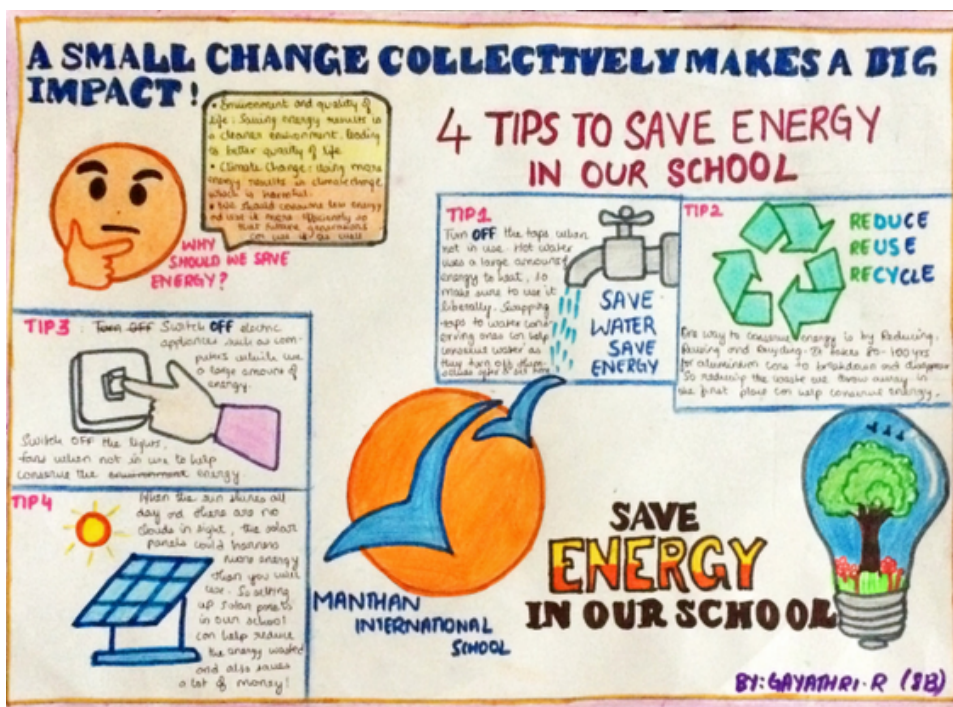 A SMALL CHANGE COLLECTIVELY MAKES A BIG
IMPACT!
• Environment and quality of
life: Saving energy results in
a cleaner environment, leading
to better quality of life
• Climate Change: Using more
energy results in climate change
which is harmful.
• We should consume less energy
and use it more efficiently so
that future generations
can use it as well
WHY
SHOULD WE SAVE
ENERGY?
4 TIPS TO SAVE ENERGY
IN OUR SCHOOL
TIP1
Turn OFF the taps when
not in use. Hot water
uses a large amount of
energy to heat, so
make sure to use it
liberally. Swapping
taps to water cons
erving ones can help
conserve water as
they turn off them
SAVE
WATER
SAVE
ENERGY
TIP2
REDUCE
REUSE
RECYCLE
One way to conserve energy is by Reducing,
Reusing and Recycling. It takes 80-100 yrs
for aluminium cans to breakdown and disappear
So reducing the waste we throw away in
the first place can help conserve energy.
TIP3 : Turn OFF Switch OFF electric
appliances such as com-
puters which use
a large amount of
energy.
Switch OFF the lights,
fans when not in use to help
conserve the environment energy.
TIP4
When the sun shines all
day and there are no
clouds in sight, the solar
panels could harness
more energy
than you will
use. So setting
up solar panels
in our school
can help reduce
the energy wasted
and also saves
a lot of money!
MANTHAN
INTERNATIONAL
SCHOOL
SAVE
ENERGY
IN OUR SCHOOL
BY: GAYATHRI.R (8B)